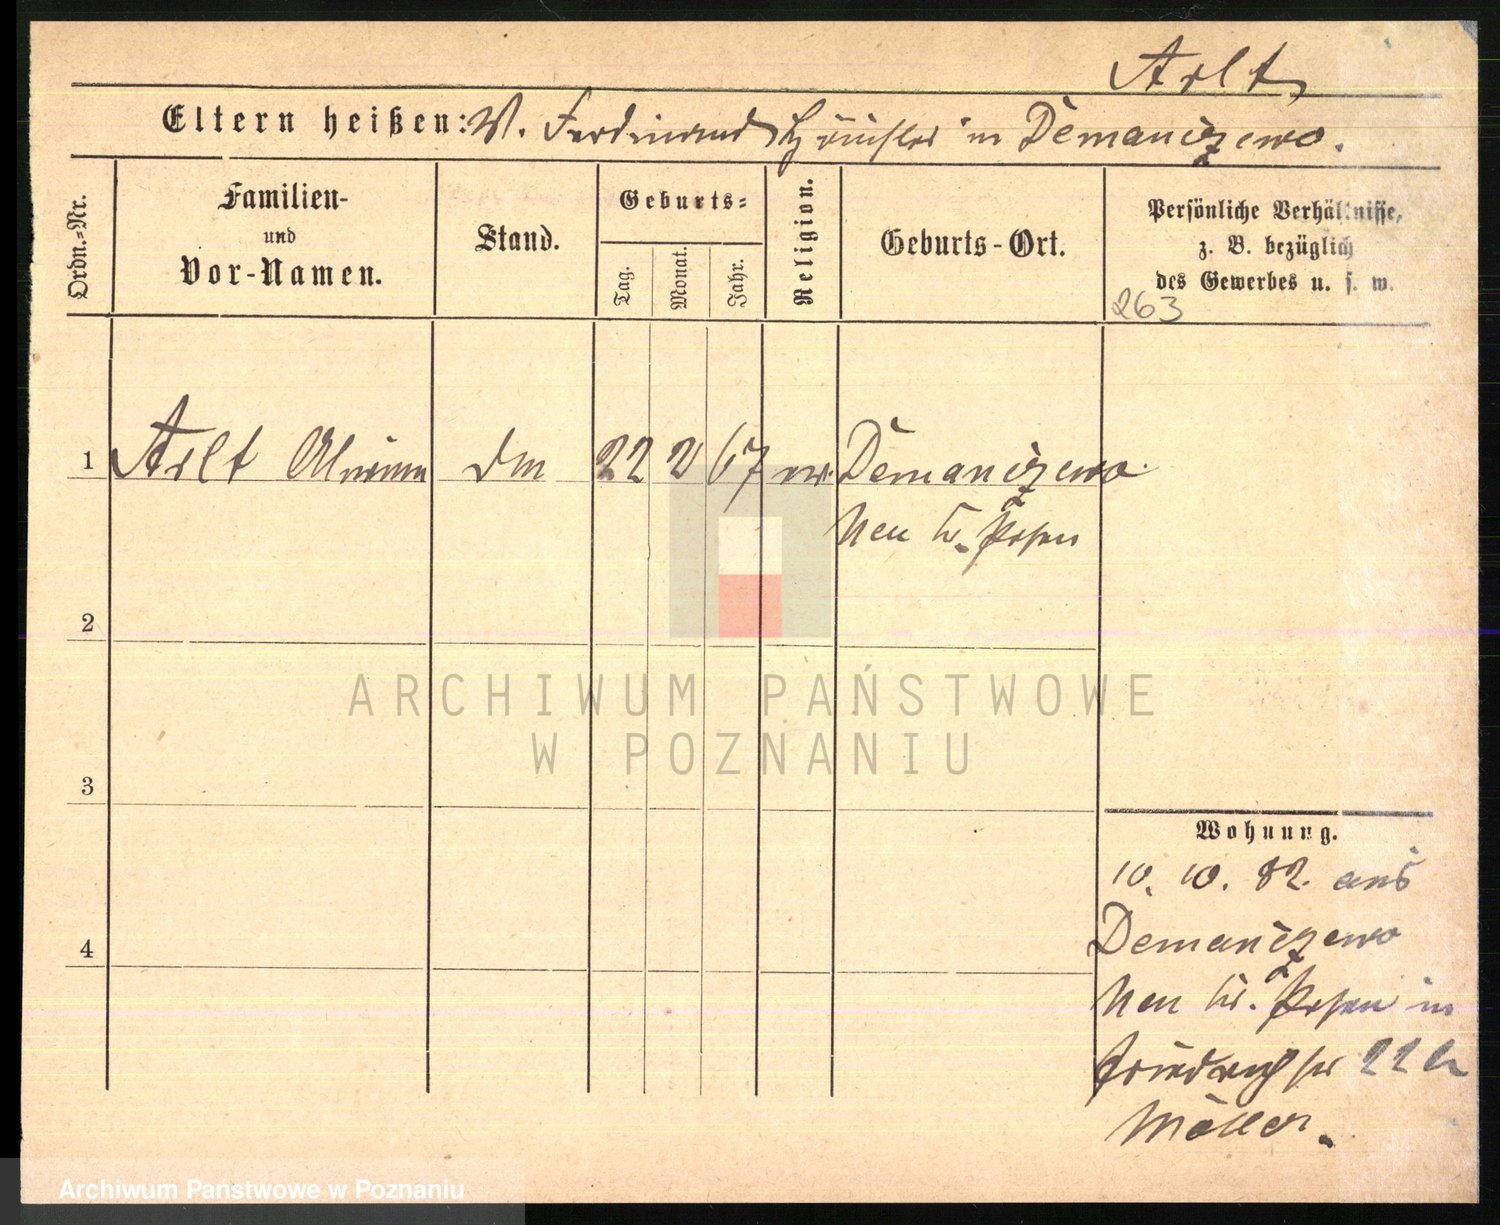 Arlt
Eltern heißen: V. Ferdinand Häusler in Demanczewo.
Ordn.-Nr.
Familien-
und
Vor-Namen.
Stand.
Geburts-
Tag.
Monat.
Jahr.
Religion.
Geburts-Ort.
Persönliche Verhältnisse,
z. B. bezüglich
des Gewerbes u. s. w.
263
1 Arlt 22 2 67 Demanczewo
Neu Kr. Posen
2
3
4
Wohnung.
10. 10. 82. aus
Demanczewo
Neu Kr. Posen in
Friedrichstr 22 b
Möller.
ARCHIWUM PAŃSTWOWE
W POZNANIU
Archiwum Państwowe w Poznaniu